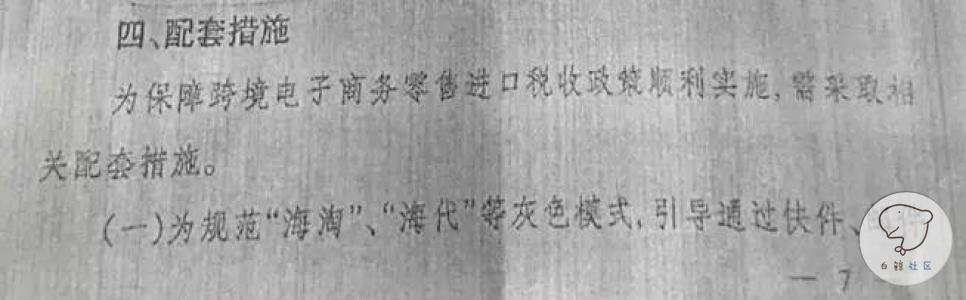 四、配套措施
为保障跨境电子商务零售进口税收政策顺利实施,需采取相
关配套措施。
(一)为规范“海淘”、“海代”等灰色模式,引导通过快件、
— 7
白鲸社区